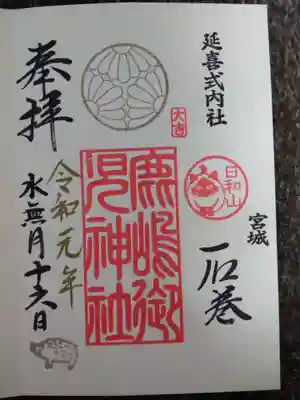 延喜式内社
日和山
宮城
石巻
鹿嶋御
児神社
大吉
奉拝
令和元年
水無月十六日